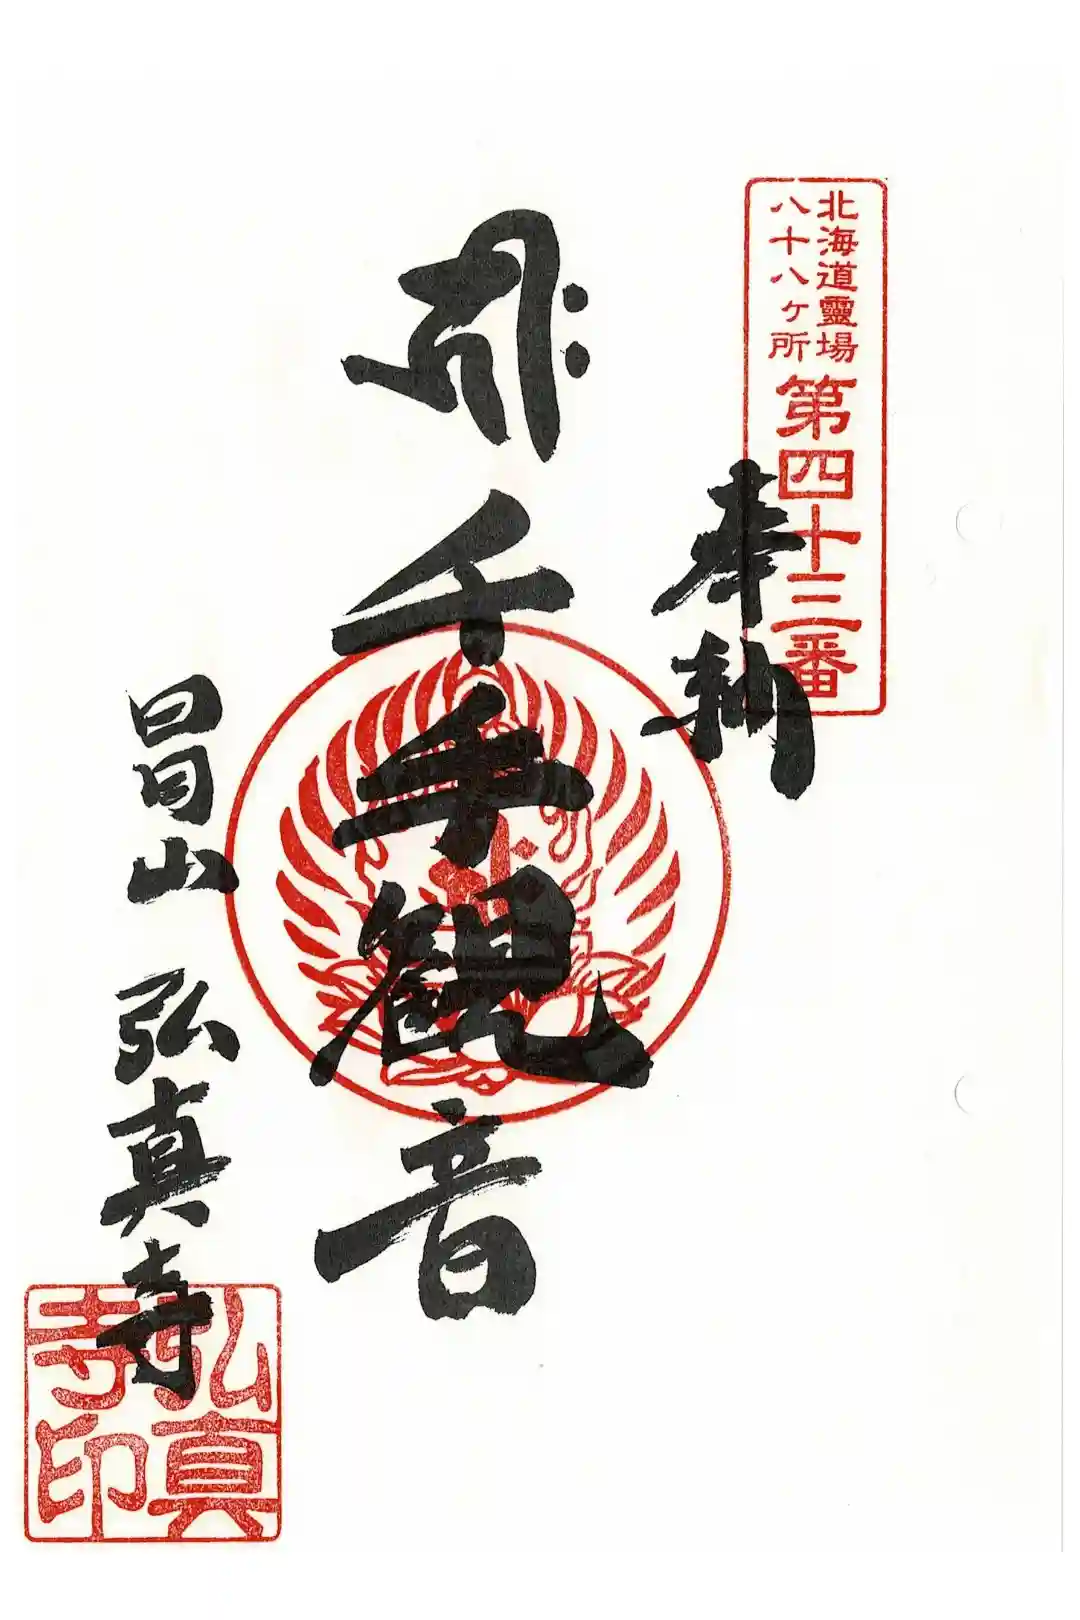 北海道靈場
八十八ヶ所
第四十三番
奉納
千手観音
昌山 弘真寺
弘真
寺印